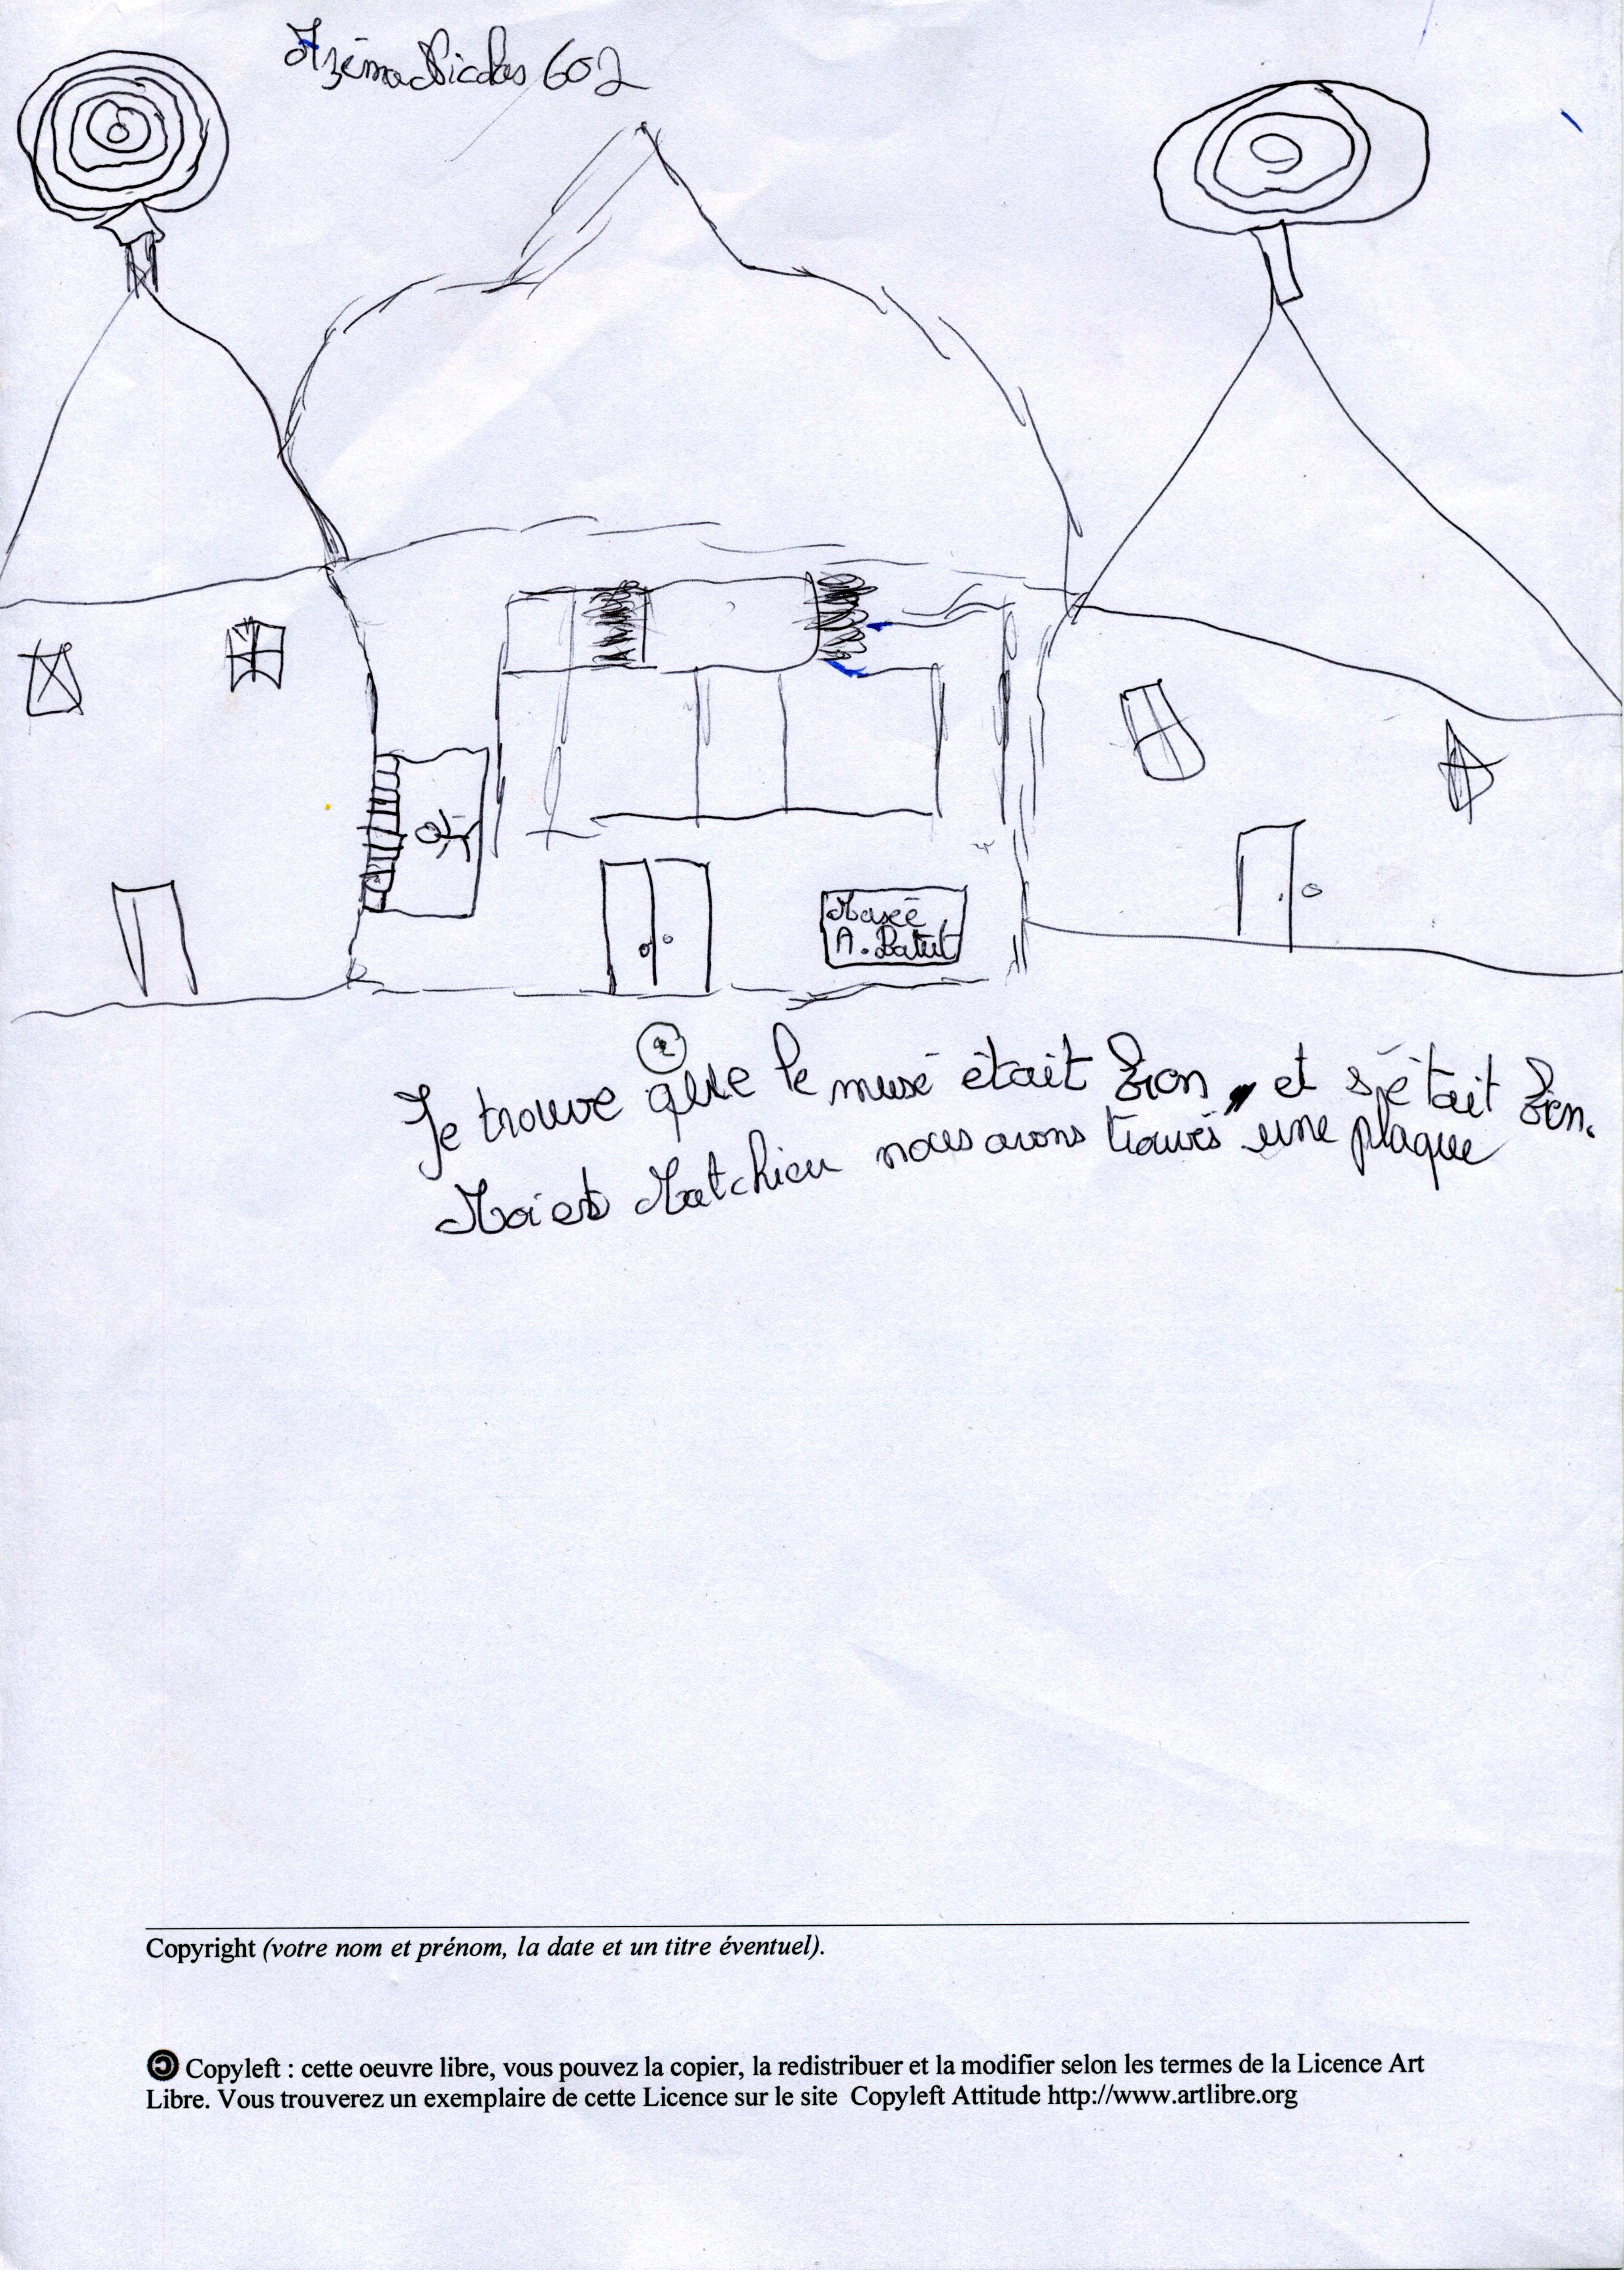 Azéma Nicolas 602
Musée
A. Batut
Je trouve que le musé était bon, et s'était bien.
Moi et Matchieu nous avons trouvés une plaque
Copyright (votre nom et prénom, la date et un titre éventuel).
Copyleft : cette oeuvre libre, vous pouvez la copier, la redistribuer et la modifier selon les termes de la Licence Art
Libre. Vous trouverez un exemplaire de cette Licence sur le site Copyleft Attitude http://www.artlibre.org